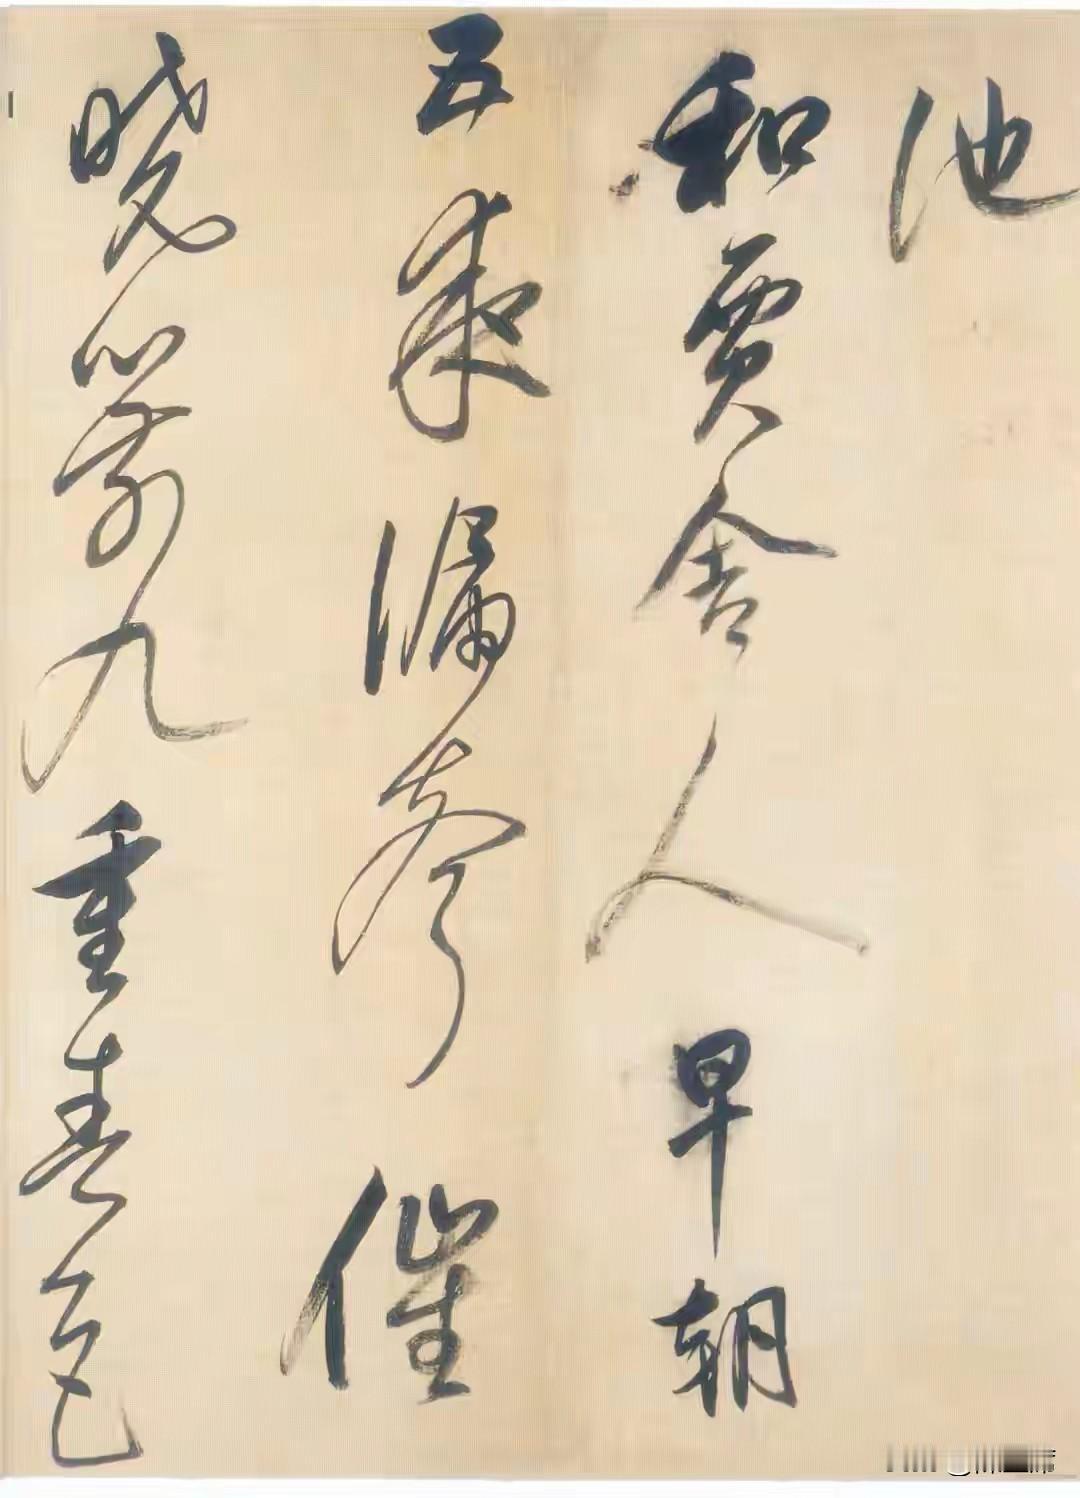 池
和贾舍人早朝
五夜漏声催
晓箭九重春色